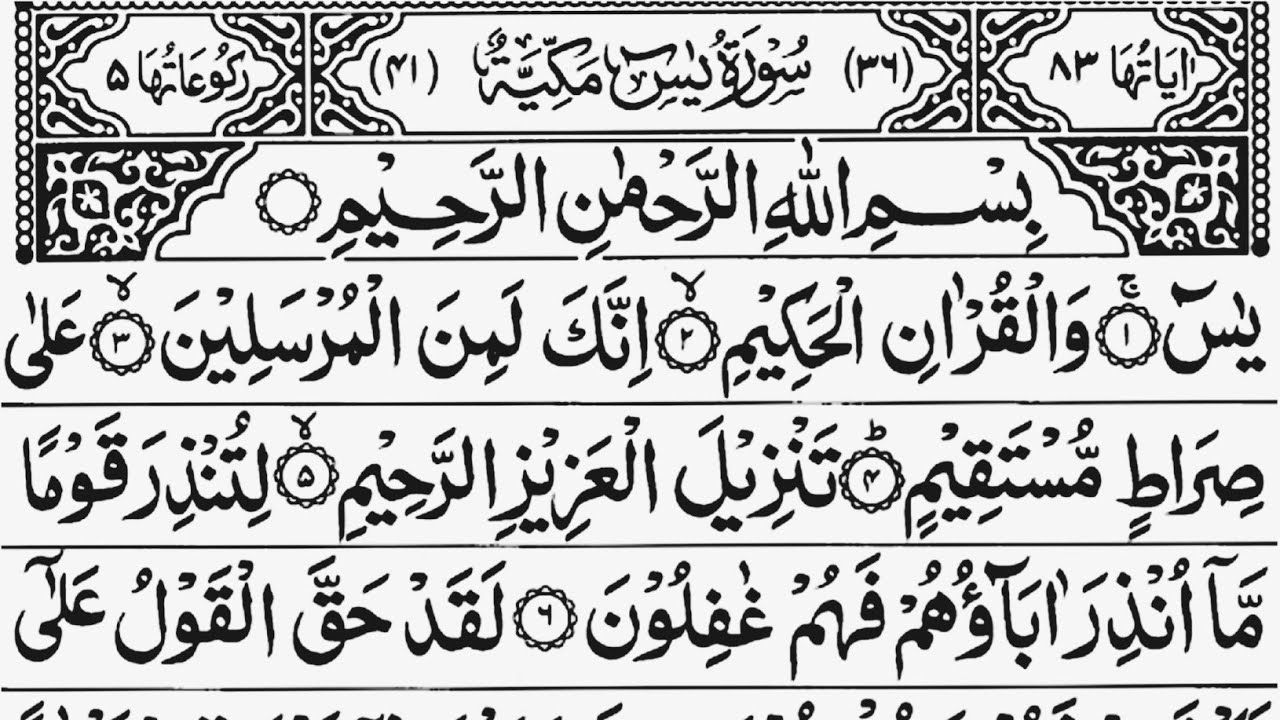 اٰيَاتُهَا ٨٣ (٣٦) سُوْرَةُ يٰسٓ مَكِّيَّةٌ (٤١) رُكُوْعَاتُهَا ٥
بِسْمِ اللّٰهِ الرَّحْمٰنِ الرَّحِيْمِ
يٰسٓ ۚ ﴿١﴾ وَالْقُرْاٰنِ الْحَكِيْمِ ۙ ﴿٢﴾ اِنَّكَ لَمِنَ الْمُرْسَلِيْنَ ۙ ﴿٣﴾ عَلٰى
صِرَاطٍ مُّسْتَقِيْمٍ ؕ ﴿۴﴾ تَنْزِيْلَ الْعَزِيْزِ الرَّحِيْمِ ۙ ﴿۵﴾ لِتُنْذِرَ قَوْمًا
مَّاۤ اُنْذِرَ اٰبَآؤُهُمْ فَهُمْ غٰفِلُوْنَ ﴿۶﴾ لَقَدْ حَقَّ الْقَوْلُ عَلٰۤى